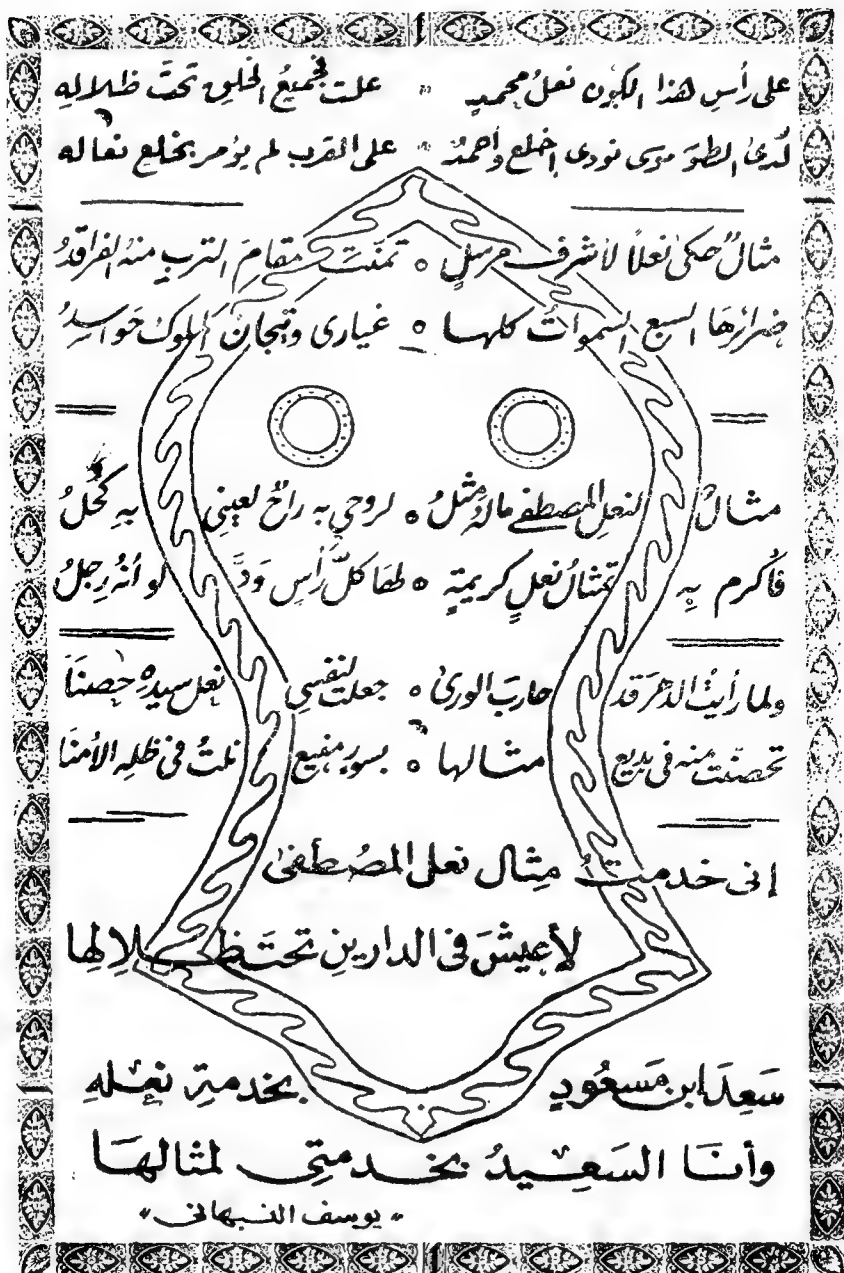 على رأس هذا الكون نعلُ محمدٍ علت فجميعُ الخلق تحتَ ظلالهِ
لدى الطور موسى نودى اخلع وأحمدٌ على القرب لم يؤمر بخلع نعاله
مثالٌ حكى نعلاً لأشرف مرسلٍ ٥ تمنّت مقامَ الترب منهُ الفراقدُ
ضرائرُهَا السبع السمواتُ كلها ٥ غيارى وتيجانُ الملوك حَواسِدُ
مثالٌ لنعلِ المصطفى مالهُ مِثلُ ٥ لروحي به راحٌ لعيني بهِ كُحلُ
فأكرم بِهِ تمثالُ نعلٍ كريمةٍ ٥ لهَا كلّ رأسٍ وَدَّ لو أنهُ رِجلُ
ولما رأيتُ الدهرَ قد حاربَ الورىٰ ٥ جعلت لنفسي نعل سيدهِ حِصنَا
تحصنّت منه في بديع مثالها ٥ بسور منيع نلتُ في ظله الأمنَا
إنى خدمتُ مِثال نعل المصُطفىٰ
لأعيشَ فى الدارينِ تحتَ ظلالِها
سَعِدَ ابن مَسعُودٍ بخدمة نعله
وأنَا السَعيدُ بخدمتى لمثالهَا
« يوسف النبهانى »